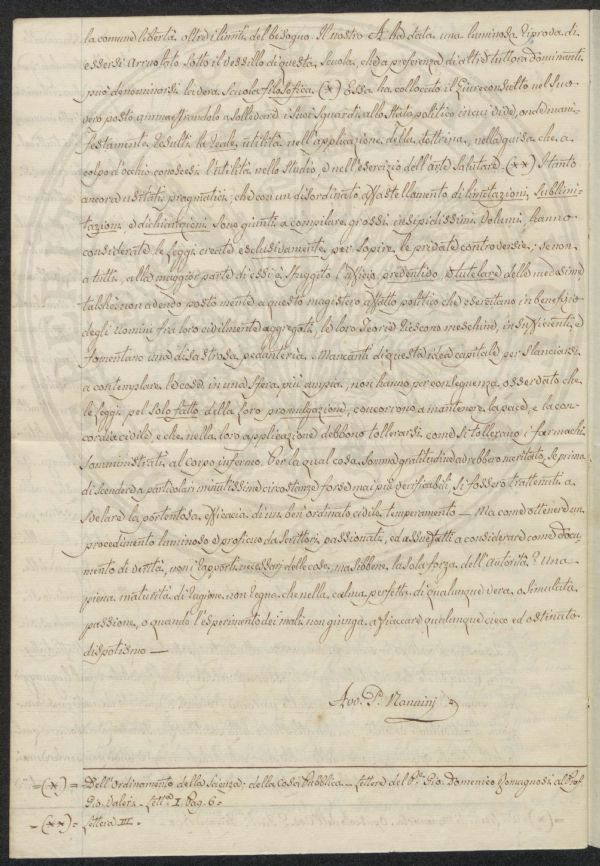 la comune libertà oltre i limiti del bisogno. Il nostro A. ha data una luminosa riprova di
essersi arruolato sotto il vessillo di questa Scuola, che a preferenza di altre tuttora dominanti
può denominarsi la vera Scuola filosofica. (x) Essa ha collocato il Giureconsulto nel suo
vero posto ammaestrandolo a sollevare i suoi sguardi allo stato politico in cui vive, onde mani-
festamente risulti la reale utilità nell'applicazione della dottrina, nella guisa che a
colpo d'occhio conoscesi l'utilità nello studio, e nell'esercizio dell'arte salutare (xx) I tanto
ancora usitati pragmatici, che con un disordinato affastellamento di limitazioni, sublimi-
tazioni, e dichiarazioni sono giunti a compilare grossi, insipidissimi volumi hanno
considerate le leggi create esclusivamente per sopire le private controversie; se non
a tutti, alla maggior parte di essi è sfuggito l'ufficio preventivo, e tutelare delle medesime
talchè non avendo posto mente a questo magistero affatto politico che esercitano in benefizio
degli uomini fra loro civilmente aggregati, le loro teorie riescono meschine, insufficienti, e
fomentano una disastrosa pedanteria. Mancanti di questa idea capitale per slanciarsi
a contemplare le cose in una sfera più ampia, non hanno per conseguenza osservato che
le leggi pel solo fatto della loro promulgazione, concorrono a mantenere la pace, e la con-
cordia civile, e che nella loro applicazione debbono tollerarsi, come si tollerano i farmachi
somministrati al corpo infermo. Per la qual cosa somma gratitudine avrebbero meritato, se prima
di scendere a particolari minutissime circostanze forse mai più verificabili, si fossero trattenuti a
svelare la portentosa efficacia di un ben'ordinato civile temperamento — Ma come ottenere un
procedimento luminoso e proficuo da scrittori passionati, ed assuefatti a considerare come docu-
mento di verità, non i rapporti necessari delle cose, ma sibbene la sola forza dell'autorità? Una
piena maturità di ragione non regna che nella calma perfetta di qualunque vera, o simulata
passione, o quando l'esperimento dei mali non giunga a fiaccare qualunque cieco ed ostinato
dispotismo —
Avv. P. Mannini
=(x)= Dell'Ordinamento della Scienza della Cosa Pubblica — Lettere del Gio. Domenico Romagnosi al Prof.
Gio. Valeri. Lett.a I. Pag. 6 -
-(xx)= Lettera III.